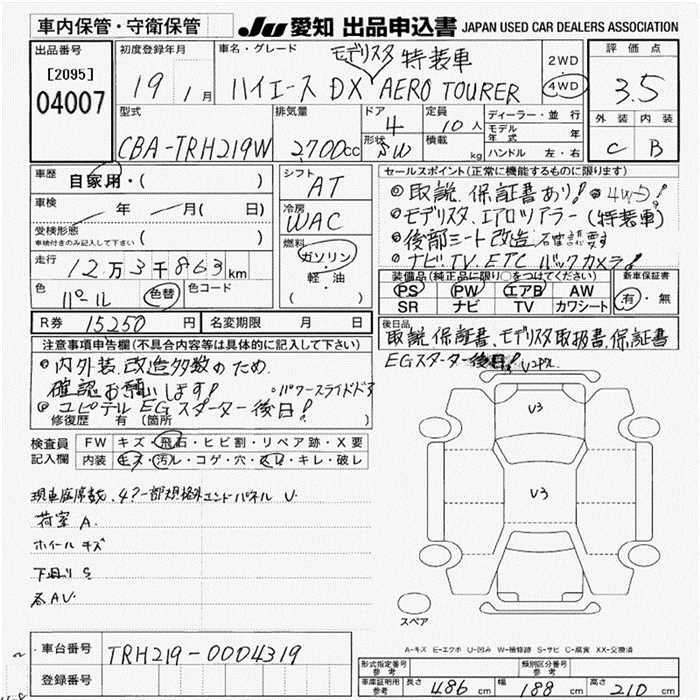 車内保管・守衛保管
JU 愛知 出品申込書 JAPAN USED CAR DEALERS ASSOCIATION
出品番号
[2095]
04007
初度登録年月
19 1月
車名・グレード
モデリスタ 特装車
ハイエース DX AERO TOURER
2WD
4WD
評価点
3.5
外装 内装
C B
型式
CBA-TRH219W
排気量
2,700cc
ドア
4
形状
SW
定員
10人
積載
kg
ディーラー・並行
モデル年式 年
ハンドル 左・右
車歴
自家用・( )
車検
年 月( 日)
受検形態
車検付きのみ記入して下さい ( )
走行
12万3千863km
色
パール
色替
色コード
シフト
AT
冷房
WAC
燃料
ガソリン
・軽・油
( )
セールスポイント(正常に機能するものに限ります)
取説、保証書あり! 4WD!
モデリスタ、エアロツアラー(特装車)
後部シート改造 確認要す
ナビ.TV.ETC バックカメラ!
装備品(純正品に限り○をつけてください)
PS PW エアB AW
SR ナビ TV カワシート
新車保証書
有・無
R券 15250円 名変期限 月 日
後日品
取説、保証書、モデリスタ取扱書、保証書
EGスターター後日!
注意事項申告欄(不具合内容等は具体的に記入して下さい)
内外装、改造多数のため
確認お願いします! 。パワースライドドア
ユピテル EGスターター後日!
修復歴 有 (箇所 )
検査員
記入欄
FW キズ・飛石・ヒビ割・リペア跡・X要
内装 キズ・汚レ・コゲ・穴・スレ・キレ・破レ
荷室 A
ホイール キズ
下回り S
各AU
U3
U3
スペア
A-キズ E-エクボ U-凹み W-補修跡 S-サビ C-腐食 XX-交換済
車台番号
TRH219-0004319
登録番号
形式指定番号 参考
類別区分番号 参考
車庫証明用 参考
長さ 486 cm 幅 188 cm 高さ 210 cm